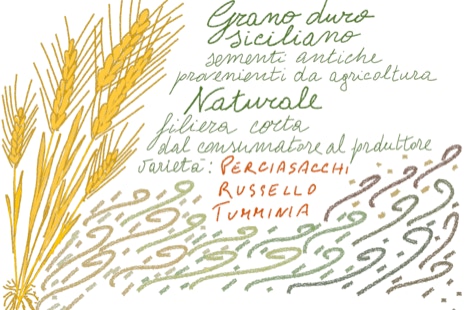 Grano duro
siciliano
sementi antiche
provenienti da agricoltura
Naturale
filiera corta
dal consumatore al prduttore
varietà: PERCIASACCHI
RUSSELLO
TUMMINIA